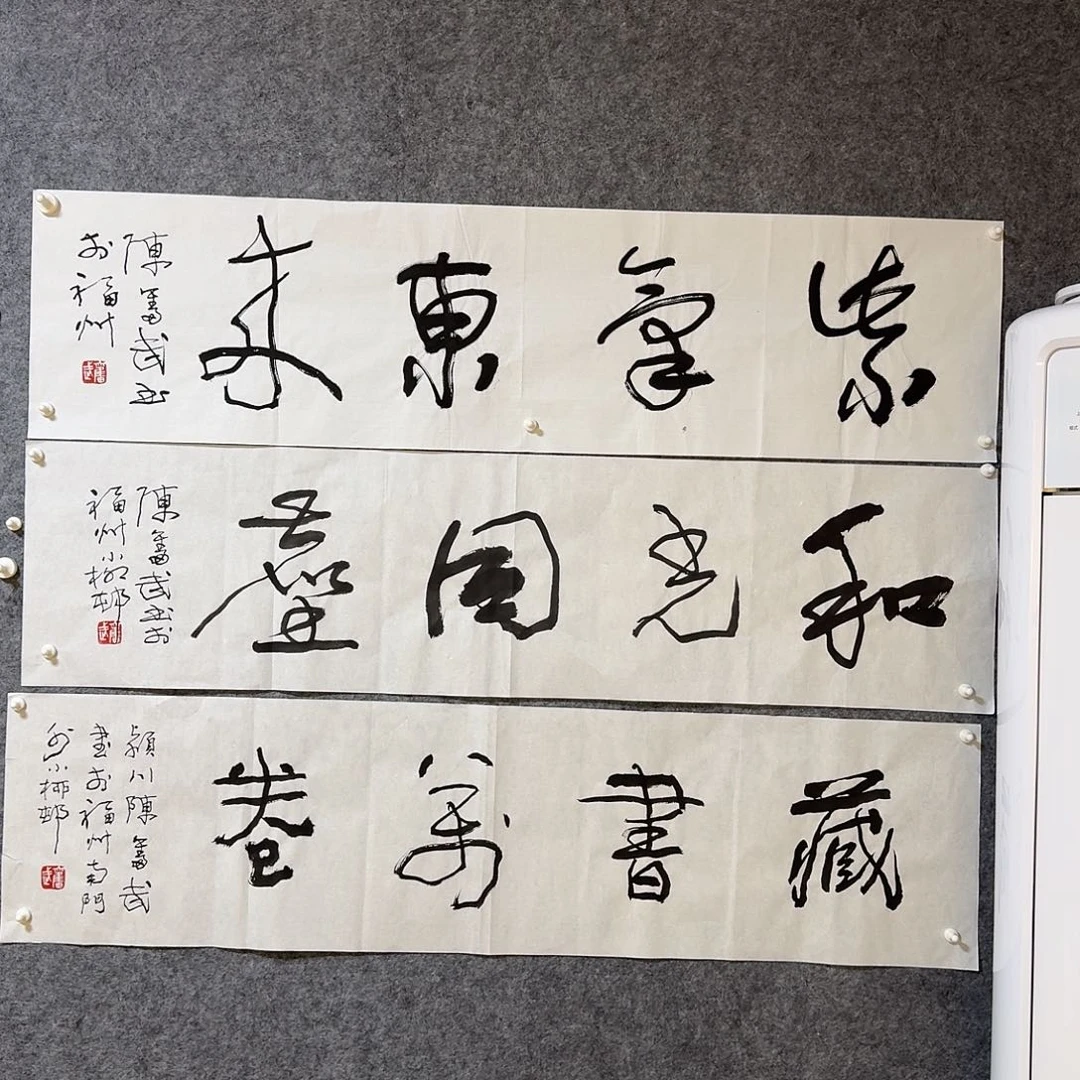 紫氣東來
陳奮武書
於福州
奮武
和光同塵
陳奮武書於
福州小柳邨
奮武
藏書萬卷
潁川陳奮武
書於福州南門
外小柳邨
奮武